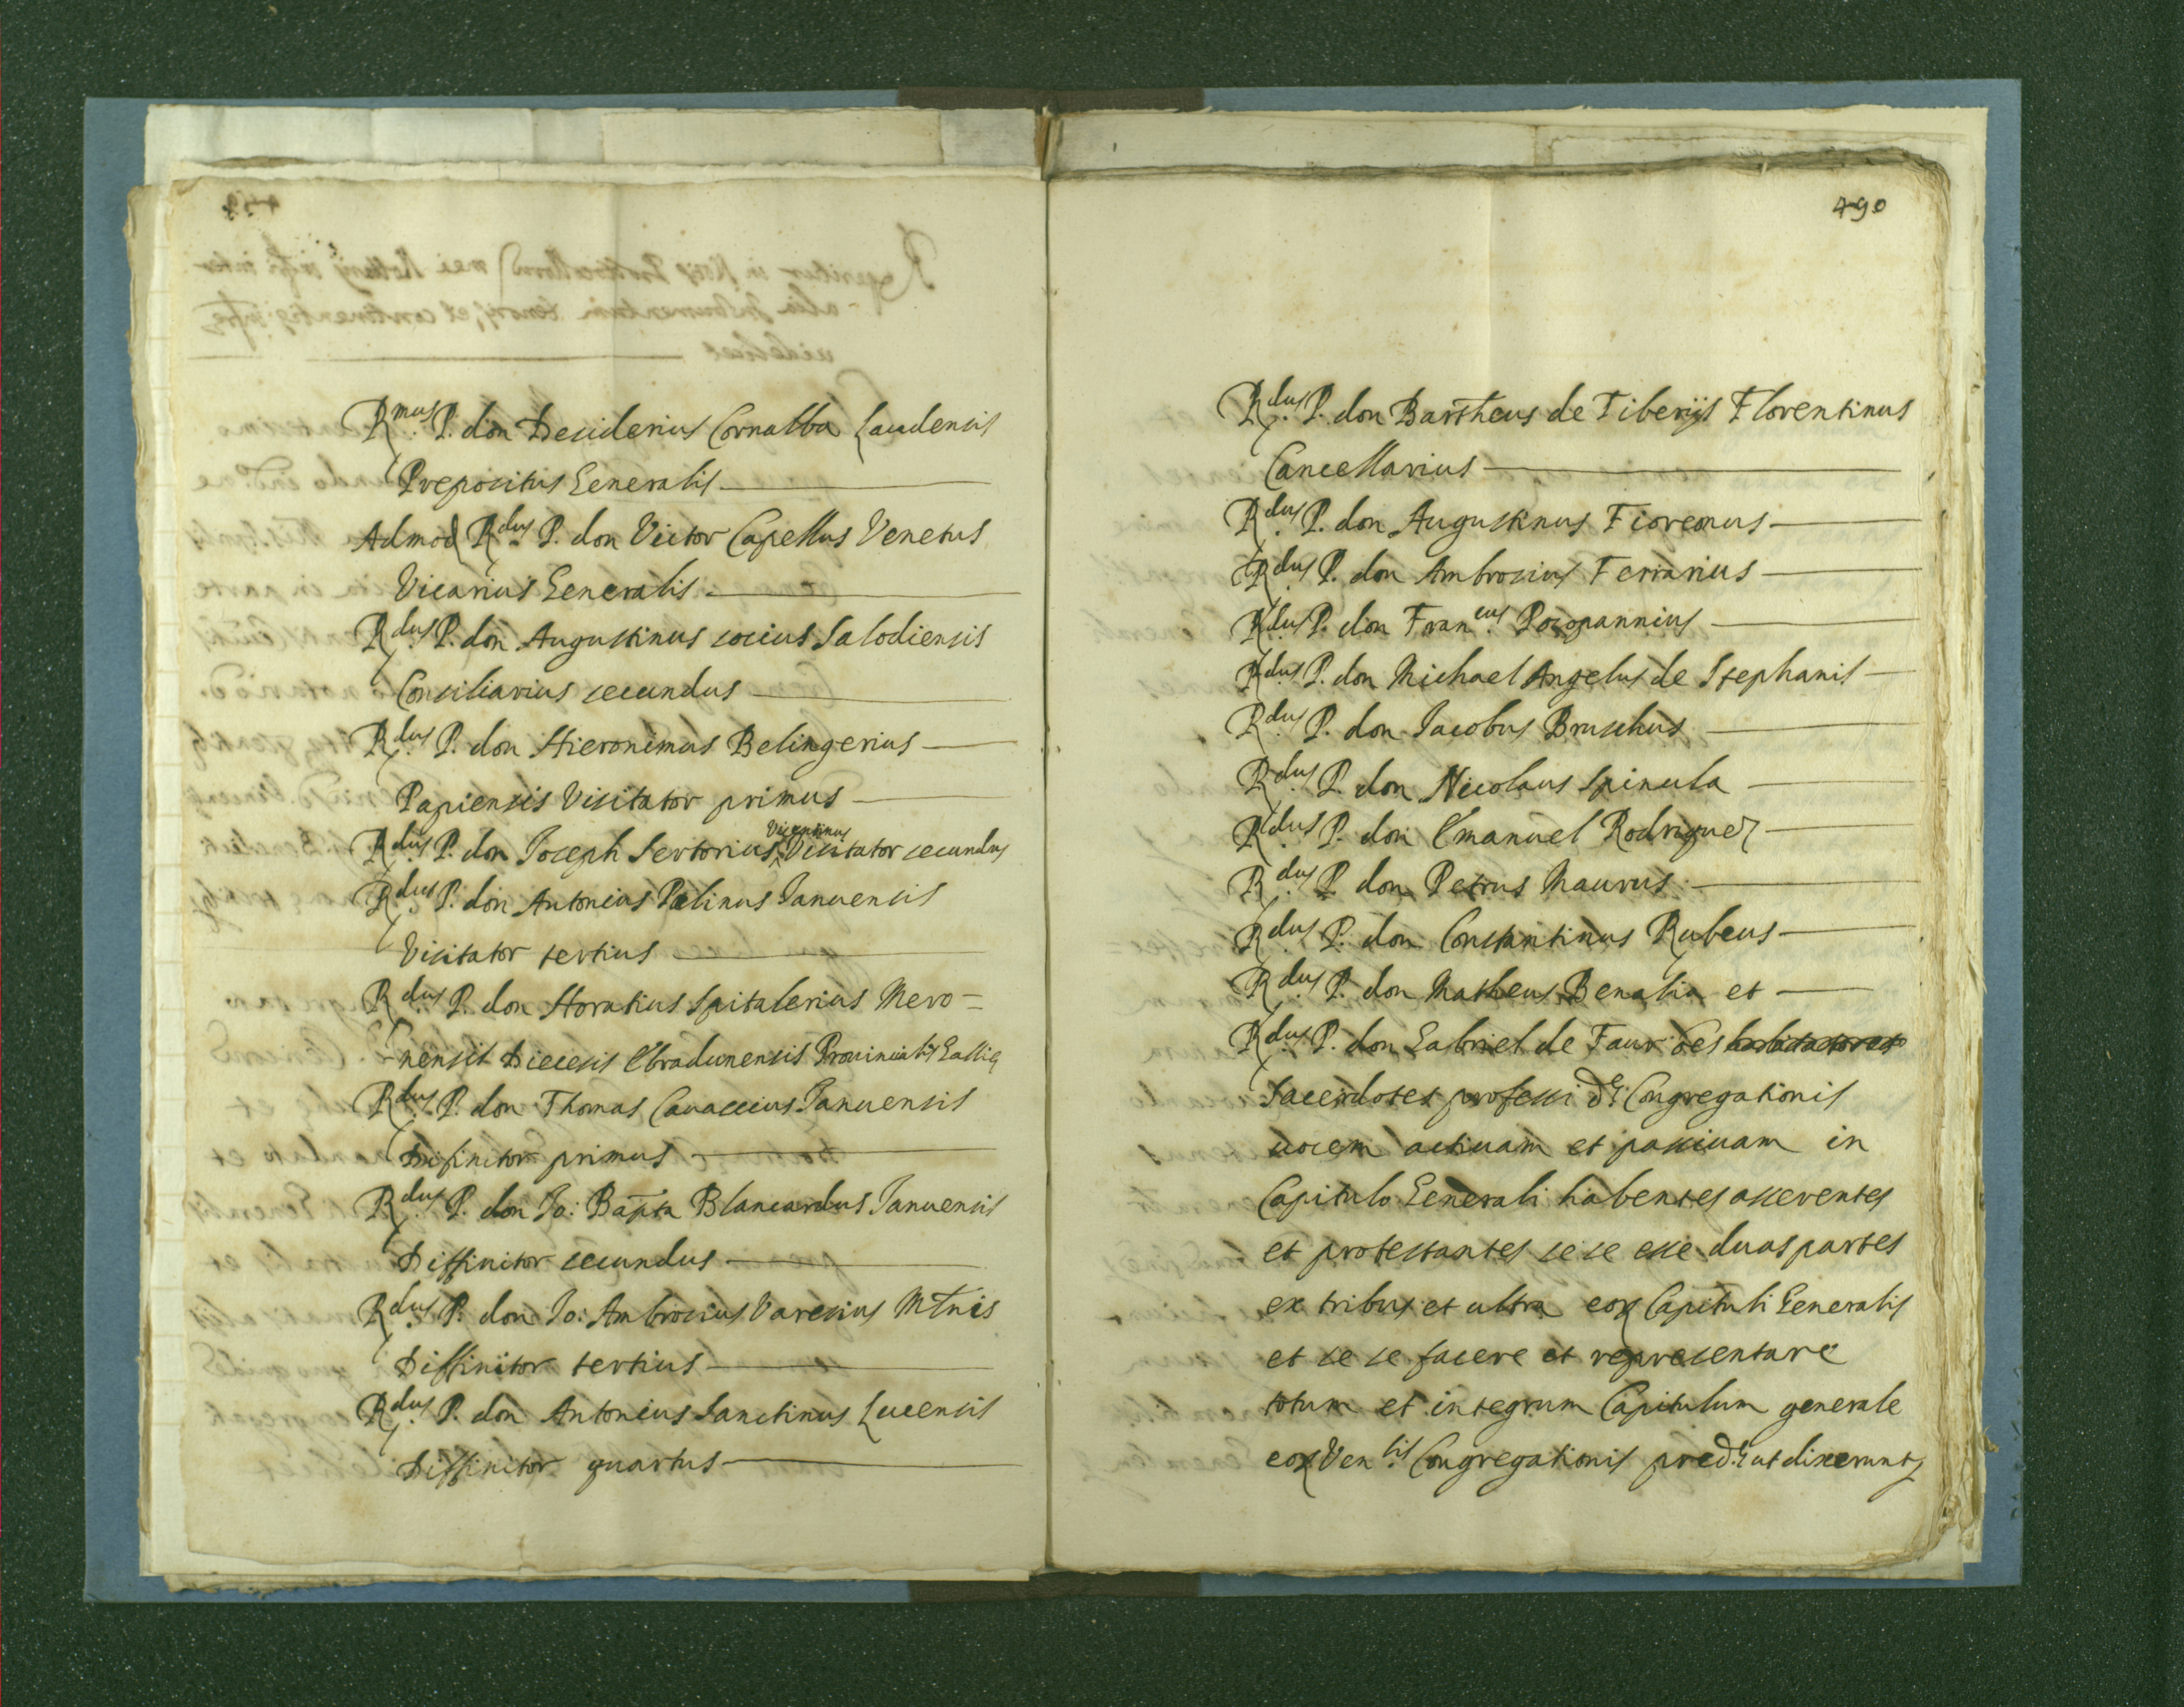 Rmus P. don Desiderius Cornalba Laudensis
Prepositus Generalis
Admod Rdus P. don Victor Capellus Venetus
Vicarius Generalis
Rdus P. don Augustinus socius Salodiensis
Consiliarius secundus
Rdus P. don Hieronimus Belingerius
Papiensis Visitator primus
Vicentinus
Rdus P. don Joseph Sertorius Visitator secundus
Rdus P. don Antonius Palinus Januensis
Visitator tertius
Rdus P. don Horatius Spitalerius Mero=
nensis Diecesis Ebradunensis Provincialis Gallie
Rdus P. don Thomas Cavaccius Januensis
Difinitor primus
Rdus P. don Jo: Bapta Blancardus Januensis
Diffinitor secundus
Rdus P. don Jo: Ambrosius Varesius Mtnis
Diffinitor tertius
Rdus P. don Antonius Sanctinus Lucensis
Diffinitor quartus
490
Rdus P. don Bartheus de Tiberijs Florentinus
Cancellarius
Rdus P. don Augustinus
Rdus P. don Ambrosius Ferrarius
Rdus P. don Francus Pocopannius
Rdus P. don Michael Angelus de Stephanis
Rdus P. don Jacobus Bruschus
Rdus P. don Nicolaus Spinula
Rdus P. don Emanuel Rodriguez
Rdus P. don Petrus Maurus
Rdus P. don Constantinus Rubeus
Rdus P. don Matheus Benalia et
Rdus P. don Gabriel de Faur oes
Sacerdotes professi de Congregationis
vocem activam et passivam in
Capitulo Generali habentes asserentes
et protestantes se se esse duas partes
ex tribus et ultra eor Capituli Generalis
et se se facere et representare
totum et integrum Capitulum generale
eor Ven.lis Congregationis pred.e ut dixerunt